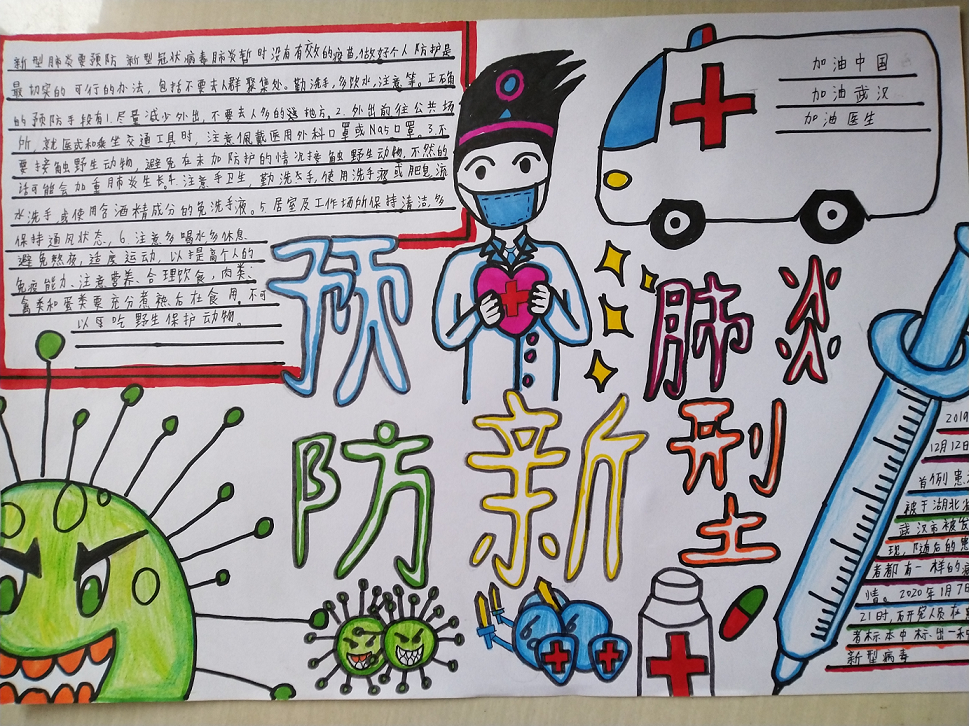 新型肺炎重预防 新型冠状病毒肺炎暂时没有有效的疫苗,做好个人防护是
最切实的可行的办法,包括不要去人群聚集处。勤洗手,多饮水,注意等。正确
的预防手段有1.尽量减少外出,不要去人多的地方。2.外出前往公共场
所,就医式和乘坐交通工具时,注意佩戴医用外科口罩或N95口罩。3.不
要接触野生动物,避免在未加防护的情况接触野生动物,不然的
话可能会加重肺炎生长4.注意手卫生,勤洗手,使用洗手液或肥皂,流
水洗手或使用含酒精成分的免洗手液。5.居室及工作场所保持清洁,多
保持通风状态,6.注意多喝水多休息
避免熬夜,适度运动,以提高个人的
免疫能力、注意营养、合理饮食,肉类、
禽类和蛋类要充分煮熟后在食用,不可
以宰吃野生保护动物。
加油中国
加油武汉
加油医生
预
防
新
型
肺
炎
2019
12月12日
首例患
被于湖北省
武汉市被发
现,随后的患
者都有一样的病
情。2020年1月7日
21时,研究人员在
者标本中标出一种
新型病毒